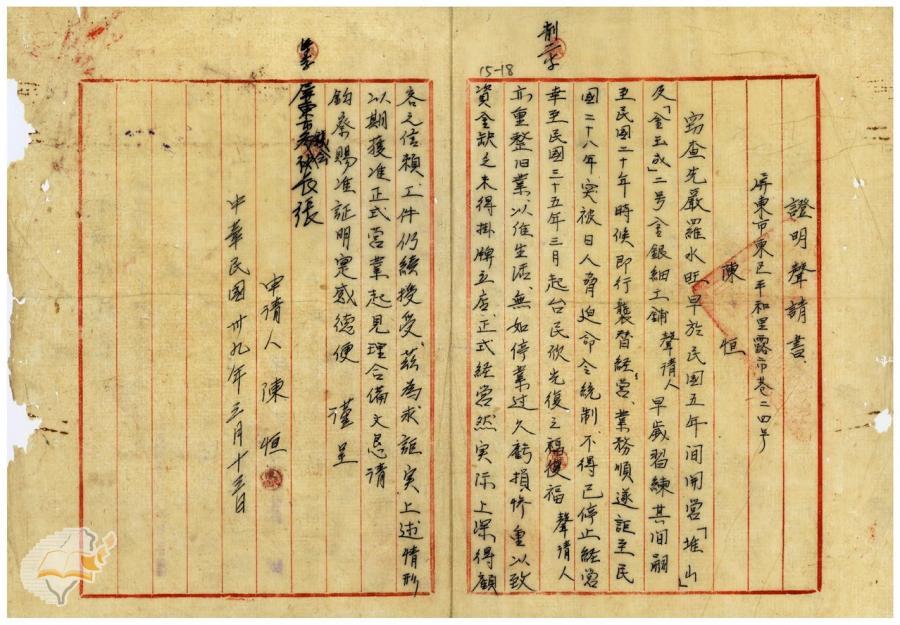 證明聲請書
屏東市東區平和里露市巷二四号
陳恒
窃查先嚴羅水旺早於民国五年间開営「堆山」
及「金玉成」二号金銀細工舖聲請人早歲習練其间嗣
至民國二十年時候即行襲替経営業務順遂詎至民
國二十八年突被日人脅迫命令統制不得已停止経営
幸至民國三十五年三月起台民欣光復之福聲請人
亦重整旧業以维生活無如停業过久虧損慘重以致
資金缺乏未得掛牌立店正式経営然实际上深得顧
客之信賴工件仍續接受茲為求証实上述情形
以期獲准正式営業起見理合備文恳请
鈞察賜准証明寔感德便　谨呈
屏東市長張
申請人　陳恒
中華民國卅九年三月十三日
削二字
15-18